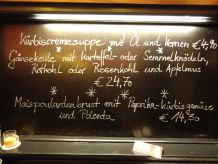 Kürbiscremesuppe mit Öl und Kernen € 4,90
Gänsekeule mit Kartoffel- oder Semmelknödeln,
Rotkohl oder Rosenkohl und Apfelmus
€ 24,70
Maispoulardenbrust mit Paprika-Kürbisgemüse
und Polenta € 14,50